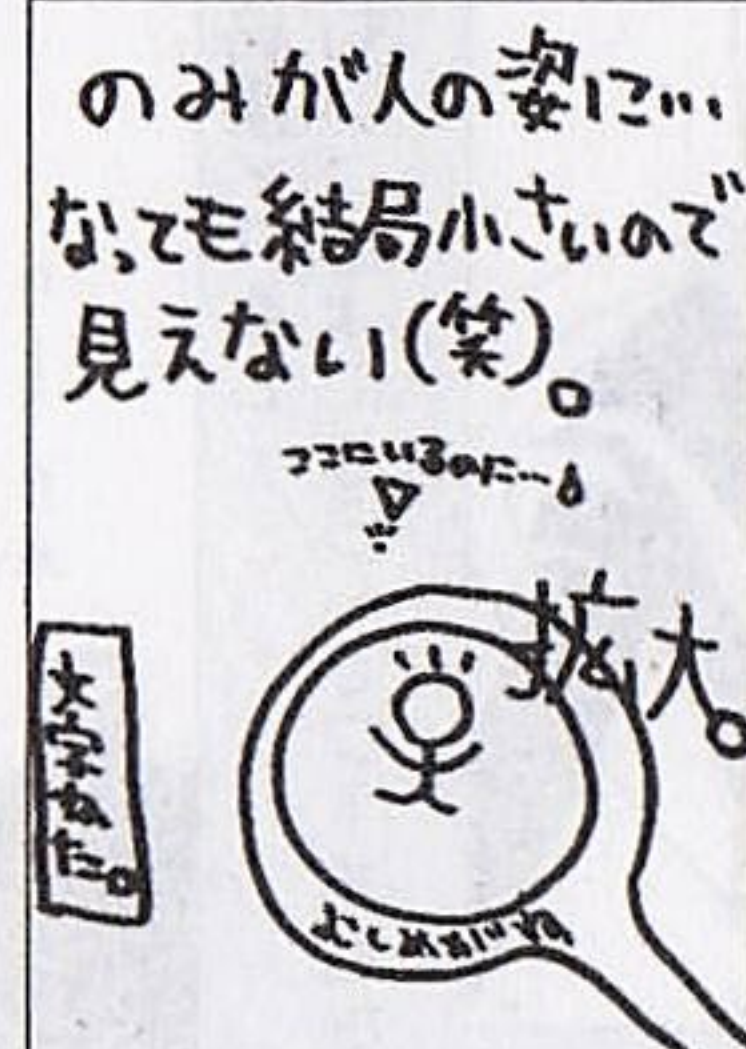 のみが人の姿に…
なっても結局小さいので
見えない(笑)。
ここにいるのに…
拡大。
文字ねた。
むしめがね